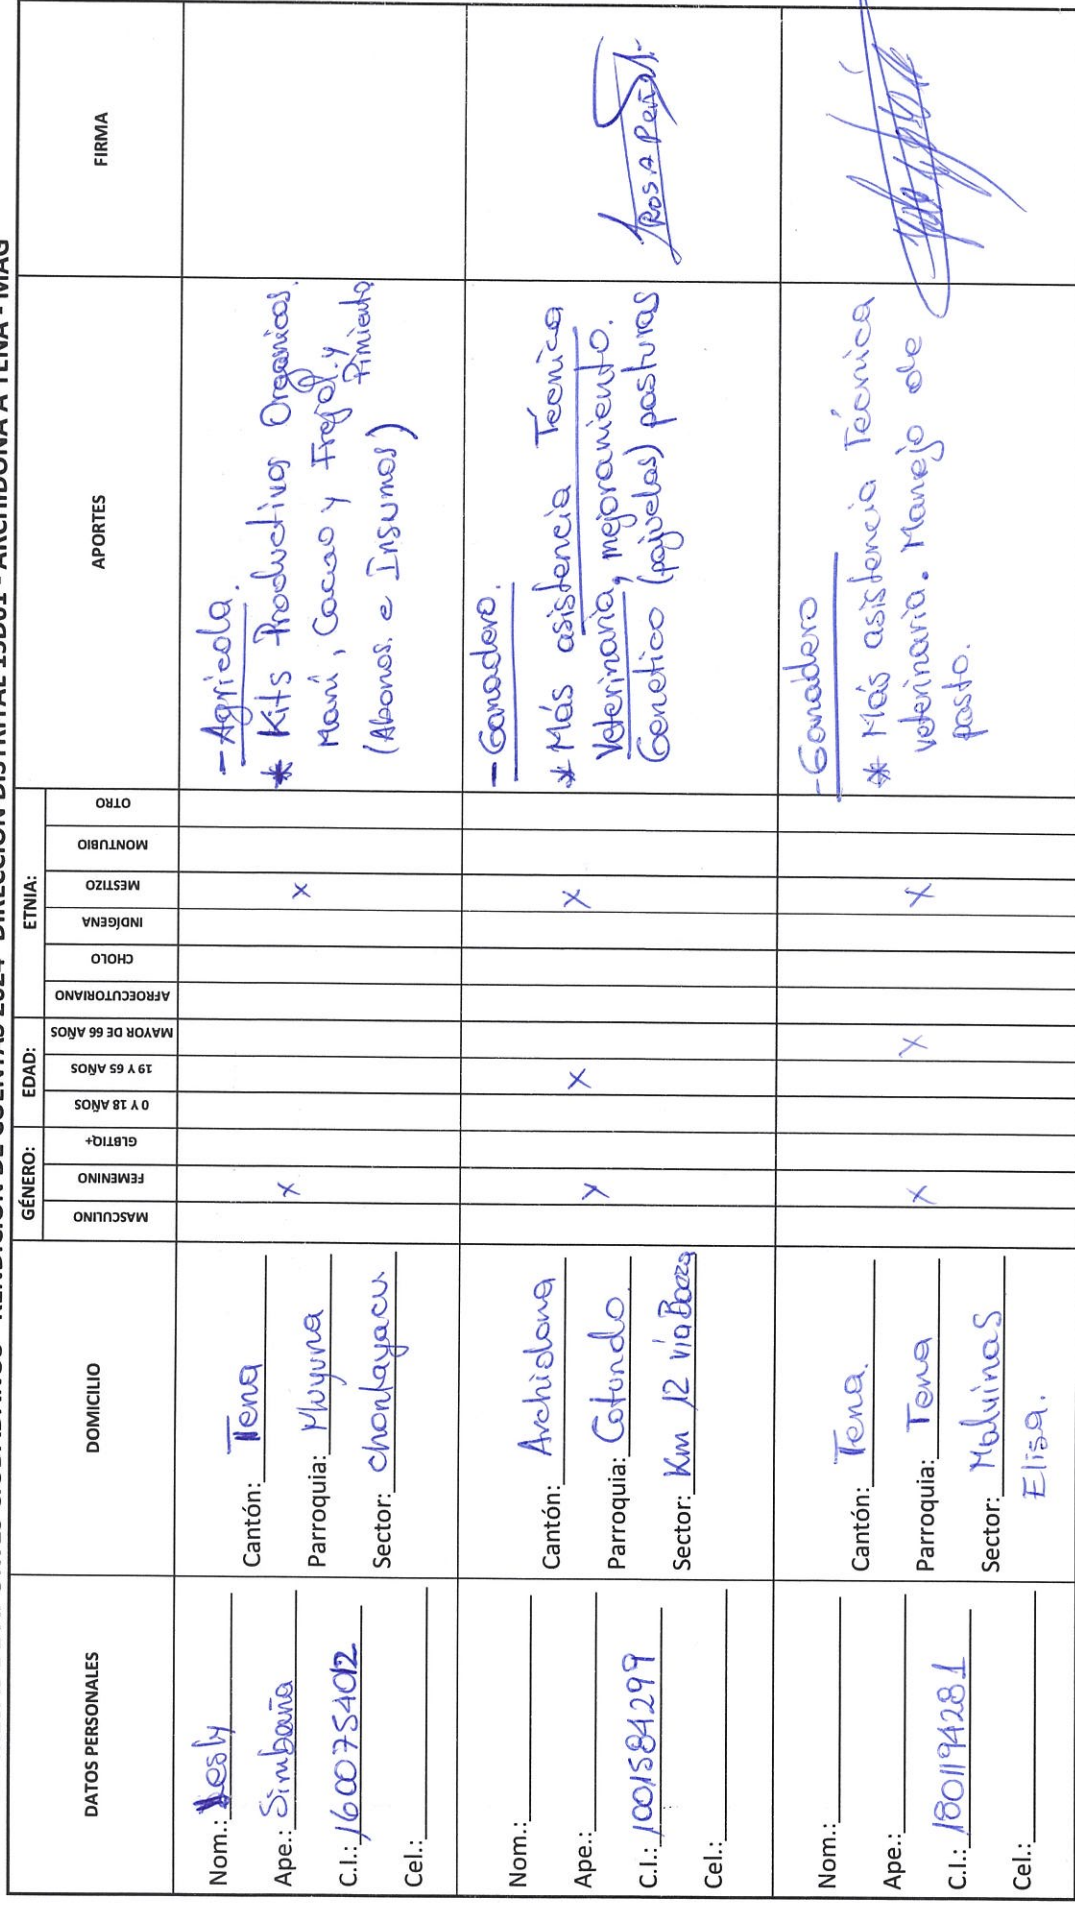 RENDICIÓN DE CUENTAS 2024 - DIRECCIÓN DISTRITAL 15D01 - ARCHIDONA A TENA - MAG
DATOS PERSONALES
DOMICILIO
GÉNERO:
EDAD:
ETNIA:
APORTES
FIRMA
MASCULINO
FEMENINO
GLBTIQ+
0 Y 18 AÑOS
19 Y 65 AÑOS
MAYOR DE 66 AÑOS
AFROECUTORIANO
CHOLO
INDÍGENA
MESTIZO
MONTUBIO
OTRO
Nom.: Lesly
Ape.: Simbaña
C.I.: 1600754012
Cel.:
Cantón: Tena
Parroquia: Muyuna
Sector: chontayacu
X
X
- Agricola.
* Kits Productivos Organicos.
Maní, Cacao y Frejol. y
Pimienta
(Abonos. e Insumos)
Nom.:
Ape.:
C.I.: 1001584299
Cel.:
Cantón: Archidona
Parroquia: Cotundo
Sector: Km 12 vía Baeza
X
X
X
- Ganadero.
* Más asistencia Técnica
Veterinaria, mejoramiento.
Genetico (pajuelas) pasturas
ROSA Peña
Nom.:
Ape.:
C.I.: 1801194281
Cel.:
Cantón: Tena.
Parroquia: Tena
Sector: Malvinas
Elisa.
X
X
X
- Ganadero
* Más asistencia Técnica
veterinaria. Manejo de
pasto.